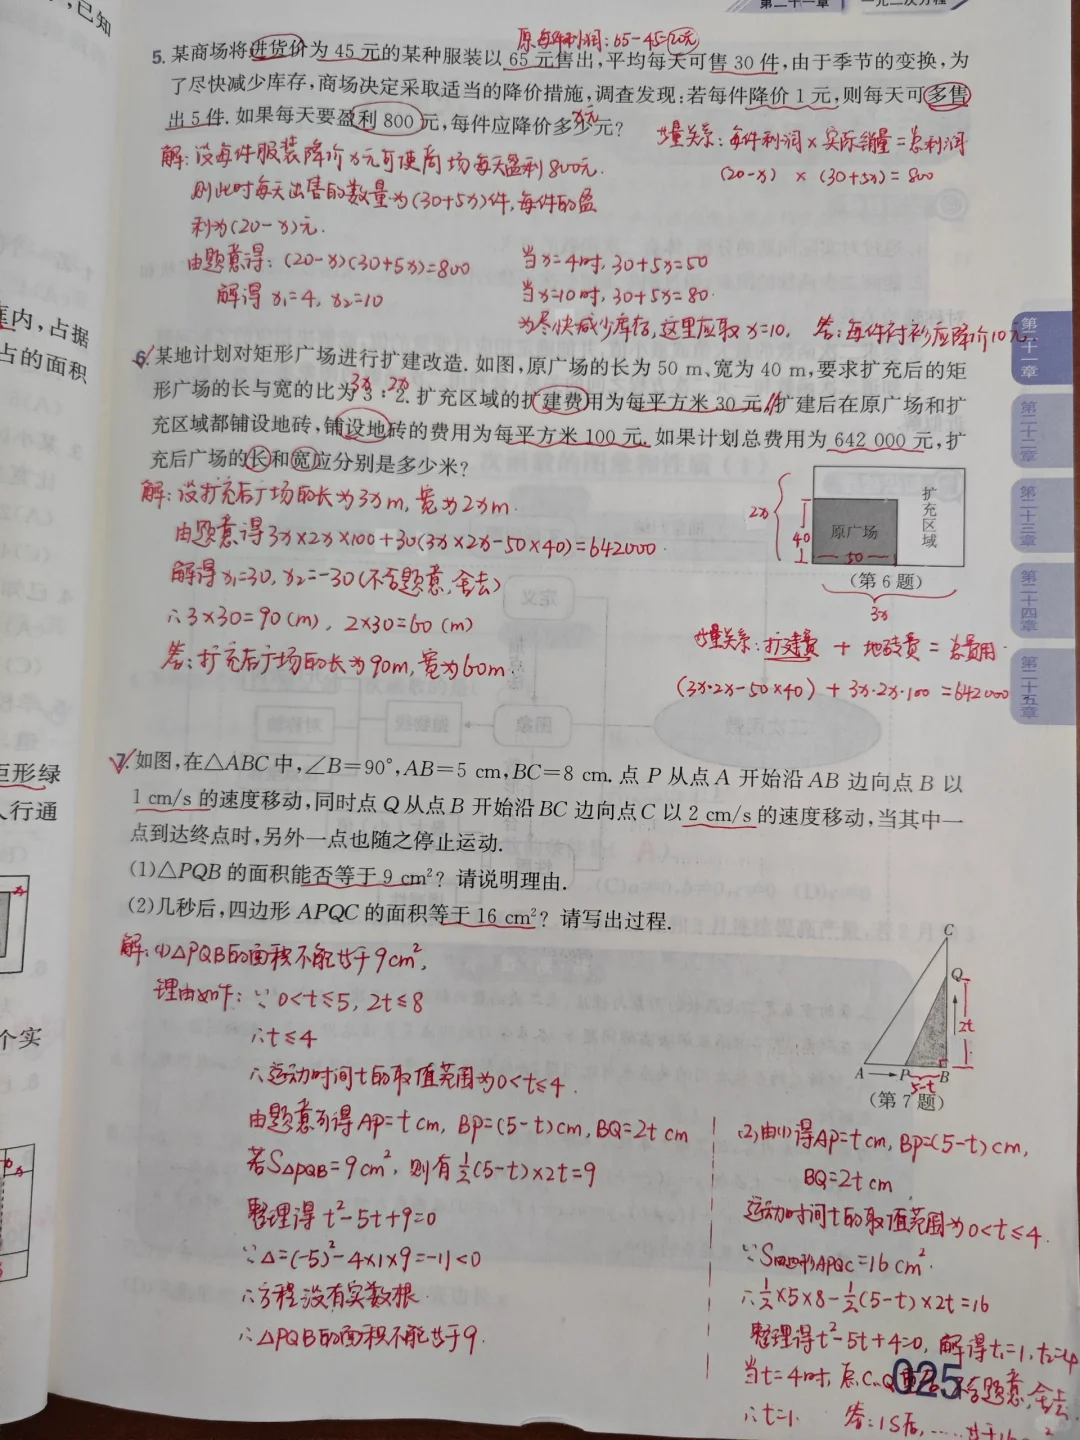 第二十一章 一元二次方程
,已知
原每件利润:65-45=20元
5. 某商场将进货价为 45 元的某种服装以 65 元售出,平均每天可售 30 件,由于季节的变换,为
了尽快减少库存,商场决定采取适当的降价措施,调查发现:若每件降价 1 元,则每天可多售
出 5 件. 如果每天要盈利 800 元,每件应降价多少元?
x元
等量关系:每件利润×实际销量=总利润
(20-x) × (30+5x)=800
解:设每件服装降价x元可使商场每天盈利800元.
则此时每天出售的数量为(30+5x)件,每件的盈
利为(20-x)元.
由题意得:(20-x)(30+5x)=800
解得 x₁=4, x₂=10
当x=4时, 30+5x=50
当x=10时, 30+5x=80.
为尽快减少库存,这里应取 x=10. 答:每件衬衫应降价10元.
框内,占据
占的面积
6. 某地计划对矩形广场进行扩建改造. 如图,原广场的长为 50 m、宽为 40 m,要求扩充后的矩
3x 2x
形广场的长与宽的比为 3 : 2. 扩充区域的扩建费用为每平方米 30 元,扩建后在原广场和扩
充区域都铺设地砖,铺设地砖的费用为每平方米 100 元. 如果计划总费用为 642 000 元,扩
充后广场的长和宽应分别是多少米?
解:设扩充后广场的长为3x m, 宽为2x m.
由题意得3x×2x×100+30(3x×2x-50×40)=642000.
解得x₁=30, x₂=-30(不合题意,舍去)
∴3×30=90(m), 2×30=60(m)
答:扩充后广场的长为90m,宽为60m.
2x
40
50
原广场
扩充区域
(第 6 题)
3x
等量关系:扩建费 + 地砖费 = 总费用
(3x·2x-50×40) + 3x·2x·100 =642000
第二十一章
第二十二章
第二十三章
第二十四章
第二十五章
矩形绿
人行通
7. 如图,在△ABC 中,∠B=90°,AB=5 cm,BC=8 cm. 点 P 从点 A 开始沿 AB 边向点 B 以
1 cm/s 的速度移动,同时点 Q 从点 B 开始沿 BC 边向点 C 以 2 cm/s 的速度移动,当其中一
点到达终点时,另外一点也随之停止运动.
(1)△PQB 的面积能否等于 9 cm²? 请说明理由.
(2)几秒后,四边形 APQC 的面积等于 16 cm²? 请写出过程.
个实
C
Q
2t
A P B
5-t
(第 7 题)
解:(1)△PQB的面积不能等于9cm²,
理由如下:∵0<t≤5, 2t≤8
∴t≤4
∴运动时间t的取值范围为0<t≤4.
由题意可得AP=t cm, BP=(5-t)cm, BQ=2t cm
若S△PQB=9cm², 则有½(5-t)×2t=9
整理得 t²-5t+9=0
∵△=(-5)²-4×1×9=-11<0
∴方程没有实数根.
∴△PQB的面积不能等于9.
(2)由(1)得AP=t cm, BP=(5-t)cm,
BQ=2t cm
运动时间t的取值范围为0<t≤4.
∵S四边形APQC=16cm².
∴½×5×8-½(5-t)×2t=16
整理得t²-5t+4=0, 解得t₁=1, t₂=4
当t=4时, 点C、Q 不合题意,舍去.
025
∴t=1. 答:1S后,……等于16